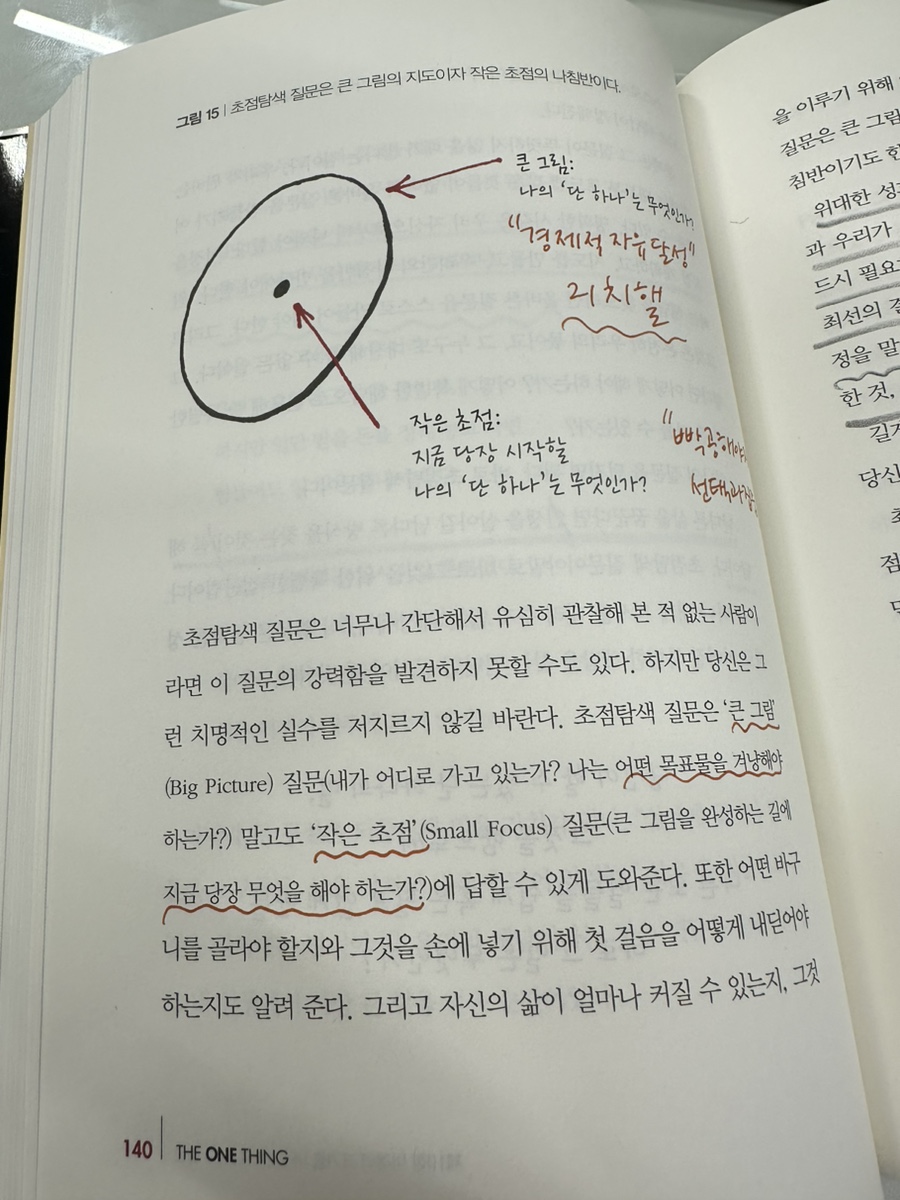 그림 15 | 초점탐색 질문은 큰 그림의 지도이자 작은 초점의 나침반이다.
큰 그림:
나의 ‘단 하나’는 무엇인가?
"경제적 자유 달성"
리치핼
작은 초점:
지금 당장 시작할
나의 ‘단 하나’는 무엇인가?
"빡공해야
선택과
초점탐색 질문은 너무나 간단해서 유심히 관찰해 본 적 없는 사람이
라면 이 질문의 강력함을 발견하지 못할 수도 있다. 하지만 당신은 그
런 치명적인 실수를 저지르지 않길 바란다. 초점탐색 질문은 ‘큰 그림’
(Big Picture) 질문(내가 어디로 가고 있는가? 나는 어떤 목표물을 겨냥해야
하는가?) 말고도 ‘작은 초점’(Small Focus) 질문(큰 그림을 완성하는 길에
지금 당장 무엇을 해야 하는가?)에 답할 수 있게 도와준다. 또한 어떤 바구
니를 골라야 할지와 그것을 손에 넣기 위해 첫 걸음을 어떻게 내딛어야
하는지도 알려 준다. 그리고 자신의 삶이 얼마나 커질 수 있는지, 그것
140 | THE ONE THING
을 이루기 위해
질문은 큰 그림
침반이기도 한
위대한 성
과 우리가
드시 필요
최선의 결
정을 말
한 것,
길
당신
최
점